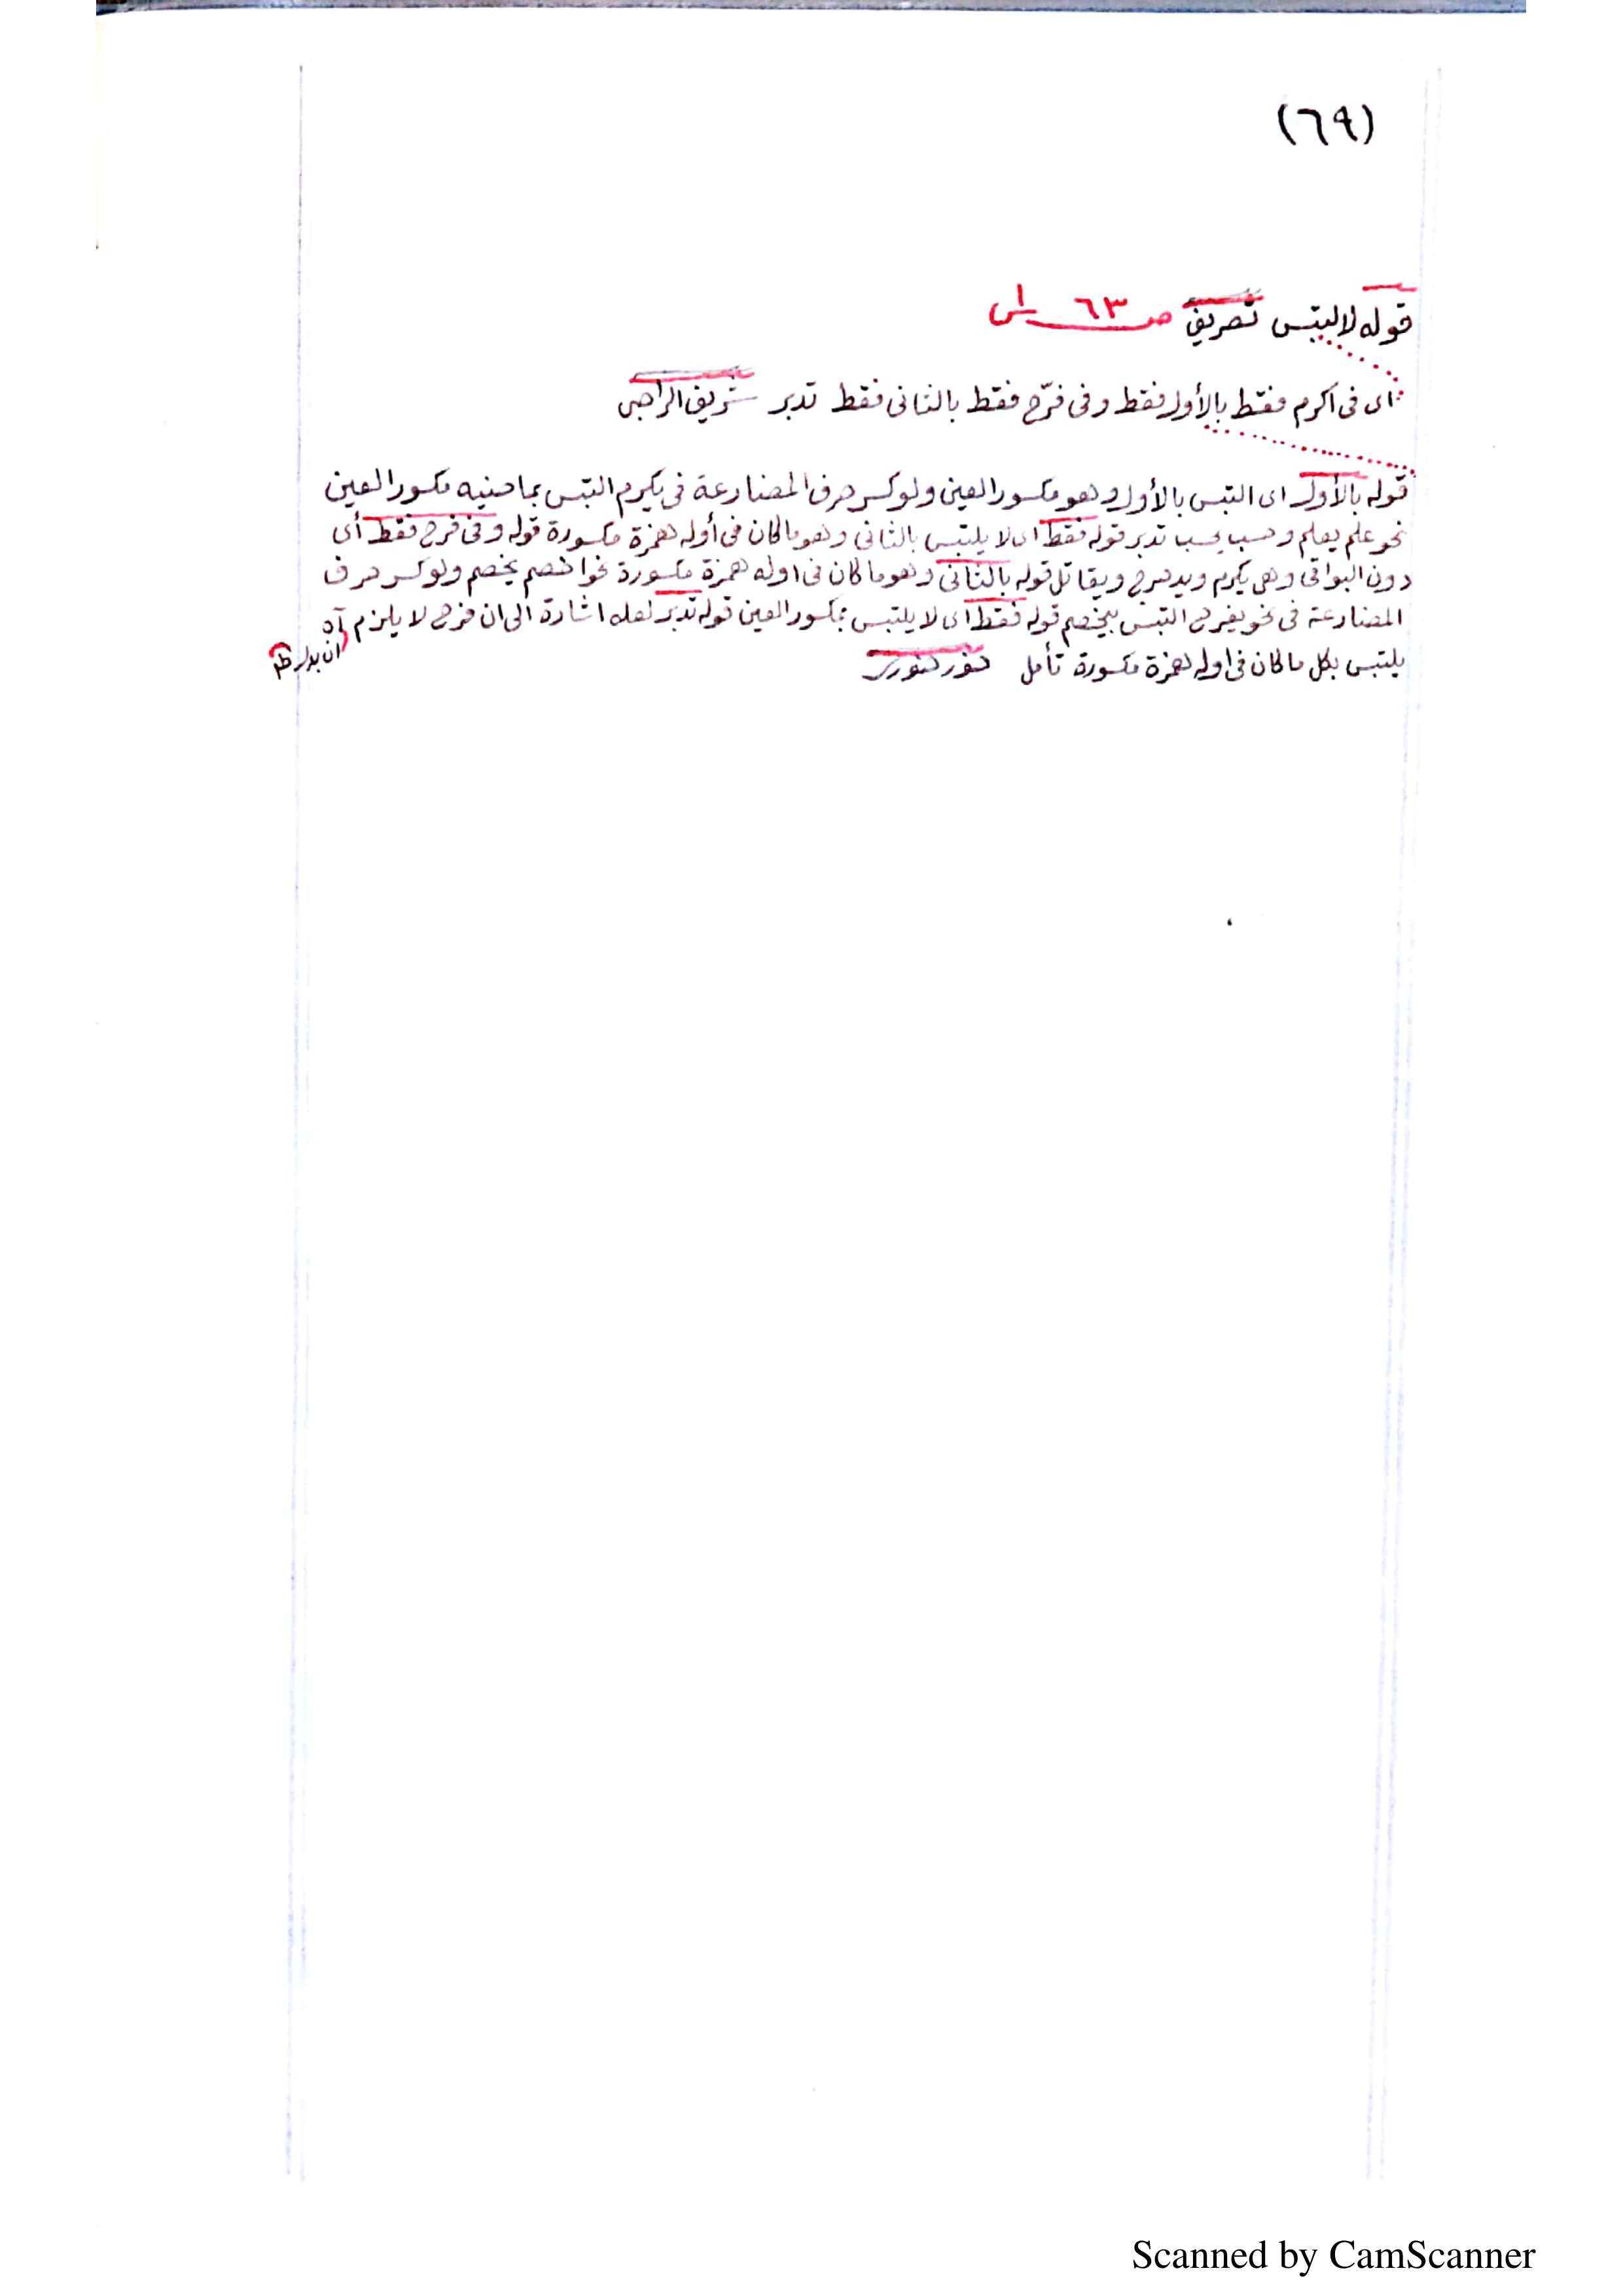 (٦٩)
قوله لالتبس تصريف ص ٦٣ س ١
اى فى اكرم فقط بالأول فقط وفى فرّح فقط بالثانى فقط تدبر شريف الراجى
قوله بالأول اى التبس بالأول وهو مكسور العين ولو كسر حرف المضارعة فى يكرم التبس بماضيه مكسور العين
نحو علم يعلم وحسب يحسب تدبر قوله فقط اى لا يلتبس بالثانى وهو ما كان فى أوله همزة مكسورة قوله وفى فرح فقط أى
دون البواقى وهى يكرم ويدحرج ويقاتل قوله بالثانى وهو ما كان فى اوله همزة مكسورة نحو اخصم يخصم ولو كسر حرف
المضارعة فى نحو يفرح التبس بيخصم قوله فقط اى لا يلتبس بمكسور العين قوله تدبر لعله اشارة الى ان فرح لا يلزم آه
ان بدل ظم
يلتبس بكل ما كان فى اوله همزة مكسورة تأمل
Scanned by CamScanner